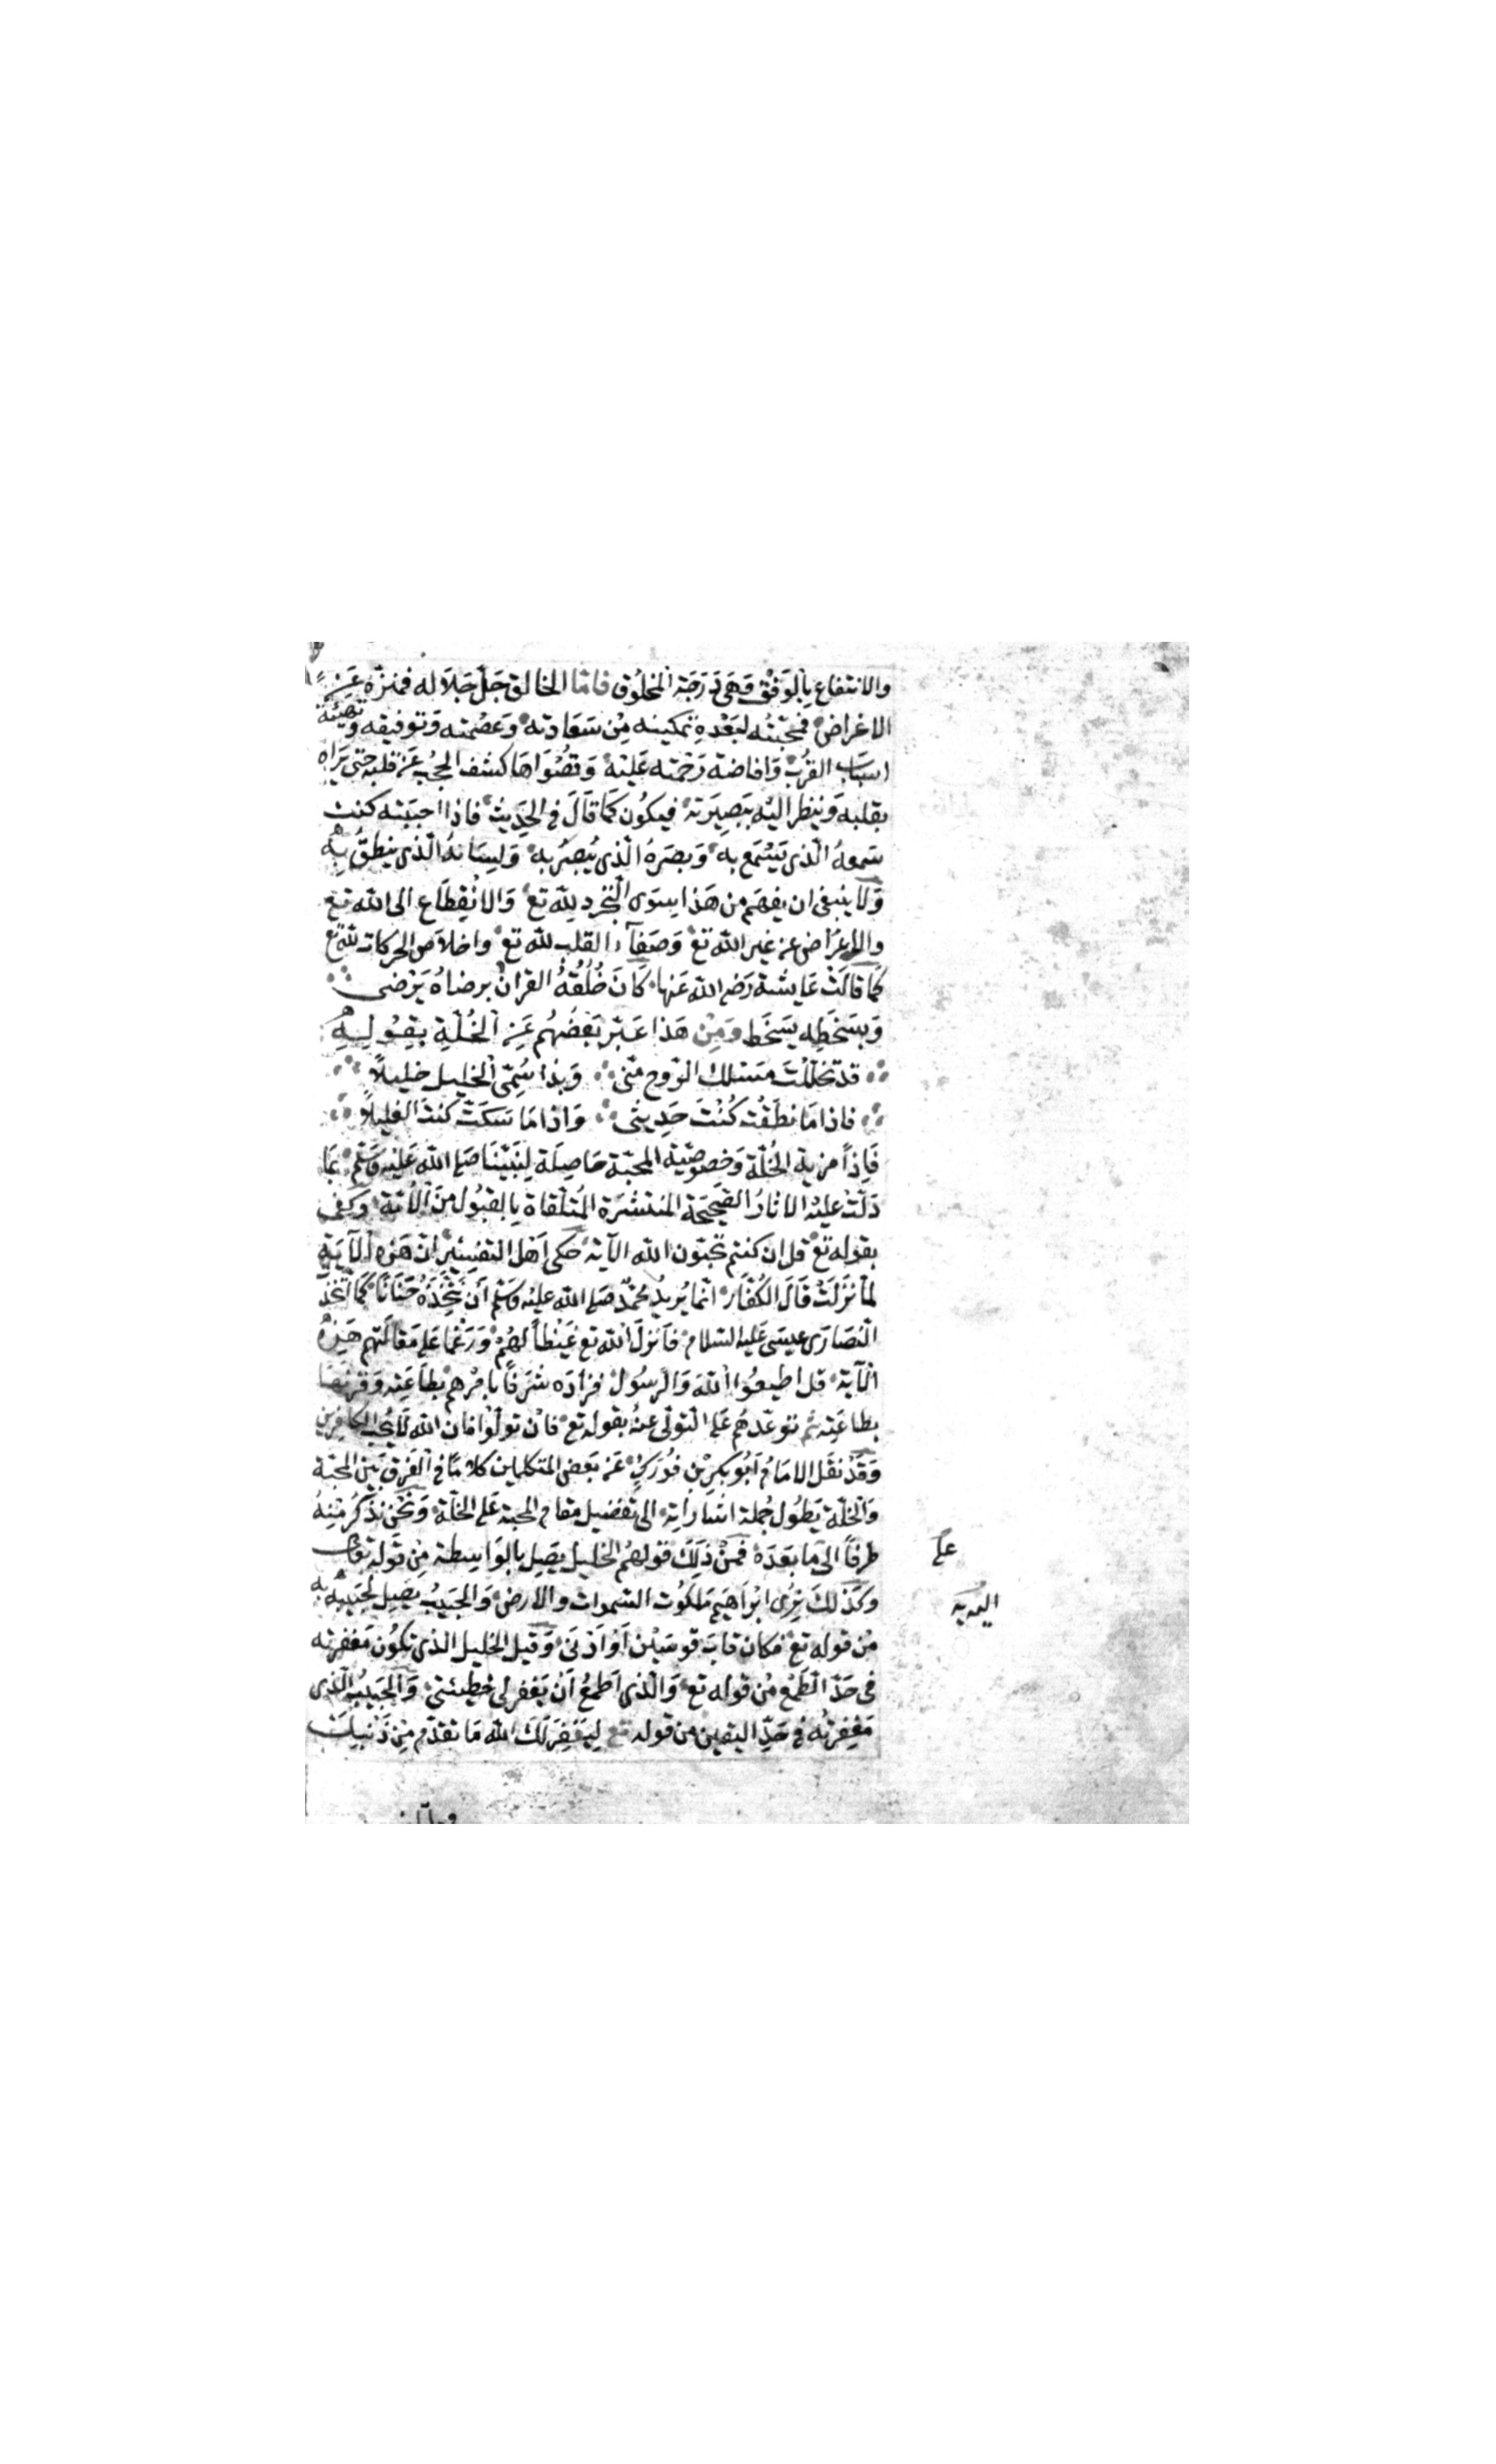 والانتفاع بالوفق وهي درجة المخلوق فاما الخالق جل جلاله فمنزه عن
الاغراض فمحبته لعبده تمكينه من سعادته وعصمته وتوفيقه وتهيئة
اسباب القرب وافاضة رحمته عليه وقصواها كشف الحجب عن قلبه حتى يراه
بقلبه وينظر اليه ببصيرته فيكون كما قال في الحديث فاذا احببته كنت
سمعه الذي يسمع به وبصره الذي يبصر به ولسانه الذي ينطق به
ولا ينبغي ان يفهم من هذا سوى التجرد لله تع والانقطاع الى الله تع
والاعراض عن غير الله تع وصفاء القلب لله تع واخلاص الحركات لله تع
كما قالت عايشة رضي الله عنها كان خلقه القران برضاه يرضى
وبسخطه يسخط ومن هذا عبر بعضهم عن الخلة بقوله
قد تخللت مسلك الروح مني وبذا سمي الخليل خليلا
فاذا ما نطقت كنت حديثي واذا ما سكت كنت الغليلا
فاذا مزية الخلة وخصوصية المحبة حاصلة لنبينا صلى الله عليه وسلم بما
دلت عليه الاثار الصحيحة المنتشرة المتلقاة بالقبول من الامة وكفى
بقوله تع قل ان كنتم تحبون الله الآية حكى اهل التفسير ان هذه الآية
لما نزلت قال الكفار انما يريد محمد صلى الله عليه وسلم ان نتخذه حنانا كما اتخذ
النصارى عيسى عليه السلام فانزل الله تع غيظا لهم ورغما على مقالتهم هذه
الآية قل اطيعوا الله والرسول فزاده شرفا بامرهم بطاعته وقرنها
بطاعته ثم توعدهم على التولي عنه بقوله تع فان تولوا فان الله لا يحب الكافرين
وقد نقل الامام ابو بكر بن فورك عن بعض المتكلمين كلاما في الفرق بين المحبة
والخلة يطول جملة اشاراته الى تفضيل مقام المحبة على الخلة ونحن نذكر منه
طرفا الى ما بعده فمن ذلك قولهم الخليل يصل بالواسطة من قوله تعالى
وكذلك نري ابراهيم ملكوت السموات والارض والحبيب يصل لحبيبه به
من قوله تع فكان قاب قوسين او ادنى وقيل الخليل الذي تكون مغفرته
في حد الطمع من قوله تع والذي اطمع ان يغفر لي خطيئتي والحبيب الذي
مغفرته في حد اليقين من قوله تع ليغفر لك الله ما تقدم من ذنبك
على